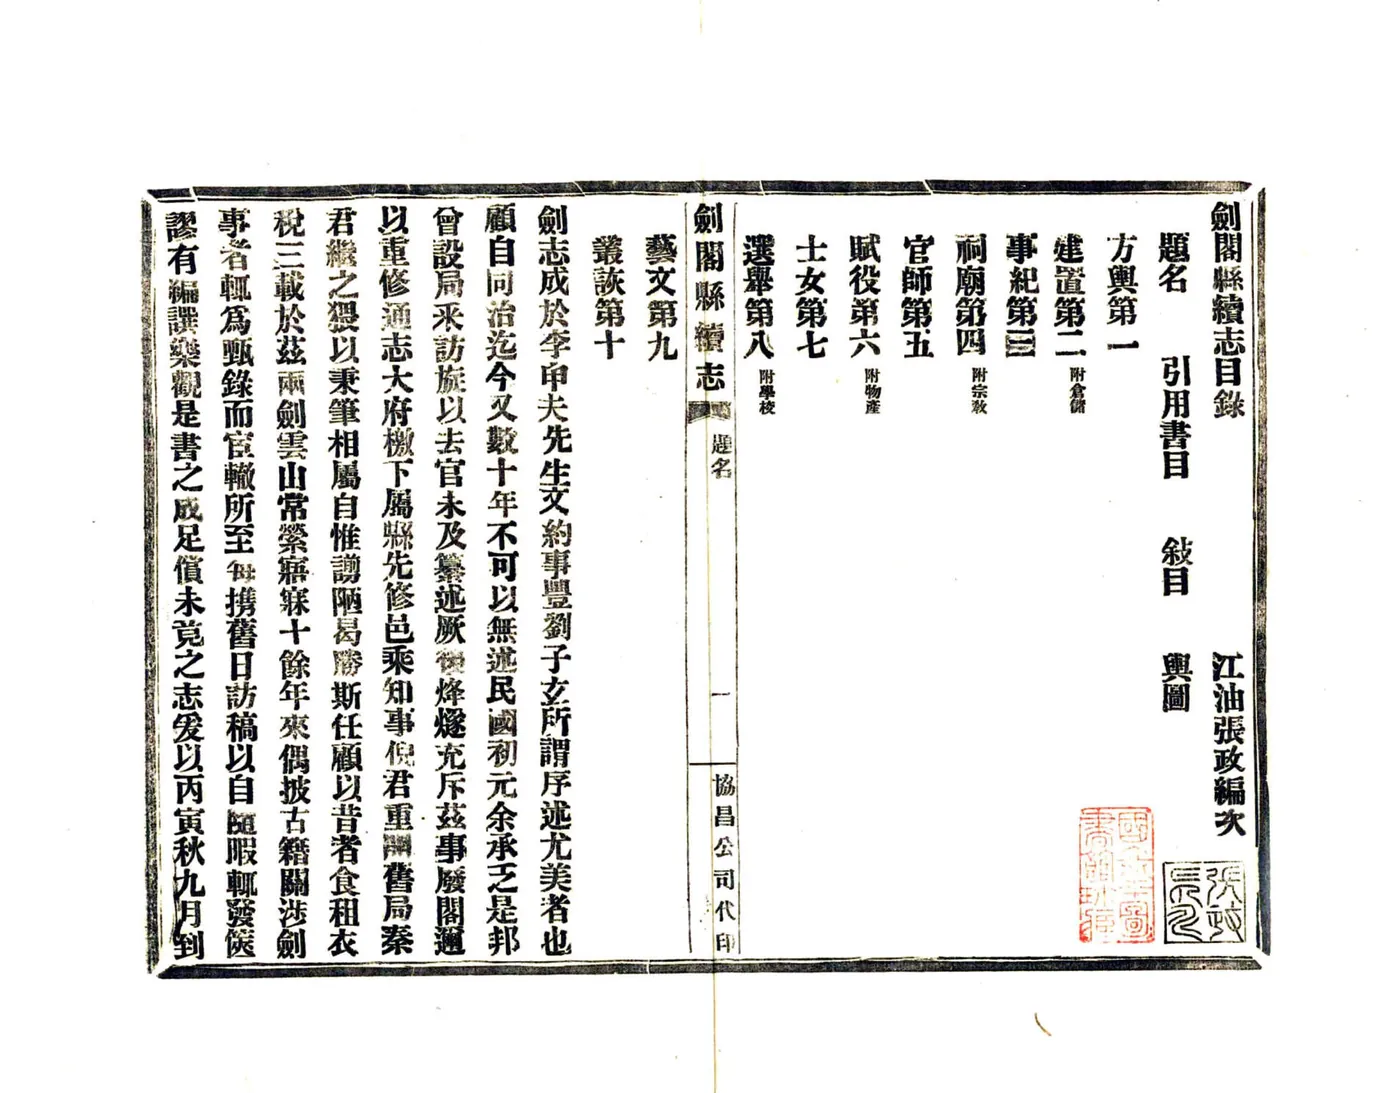 劍閣縣續志目錄　江油張政編次
題名　引用書目　敍目　輿圖
方輿第一
建置第二 附倉儲
事紀第三
祠廟第四 附宗敎
官師第五
賦役第六 附物產
士女第七
選舉第八 附學校
劍閣縣續志　題名　一　協昌公司代印
藝文第九
叢詼第十
劍志成於李申夫先生文約事豐劉子玄所謂序述尤美者也
顧自同治迄今又數十年不可以無述民國初元余承乏是邦
曾設局采訪旋以去官未及纂述厥後烽燧充斥茲事廢閣邇
以重修通志大府檄下屬縣先修邑乘知事倪君重開舊局秦
君繼之猥以秉筆相屬自惟謭陋曷勝斯任顧以昔者食租衣
稅三載於茲兩劍雲山常縈寤寐十餘年來偶披古籍關涉劍
事者輒爲甄錄而宦轍所至每携舊日訪稿以自隨暇輒發篋
謬有編譔樂觀是書之成足償未竟之志爰以丙寅秋九月到